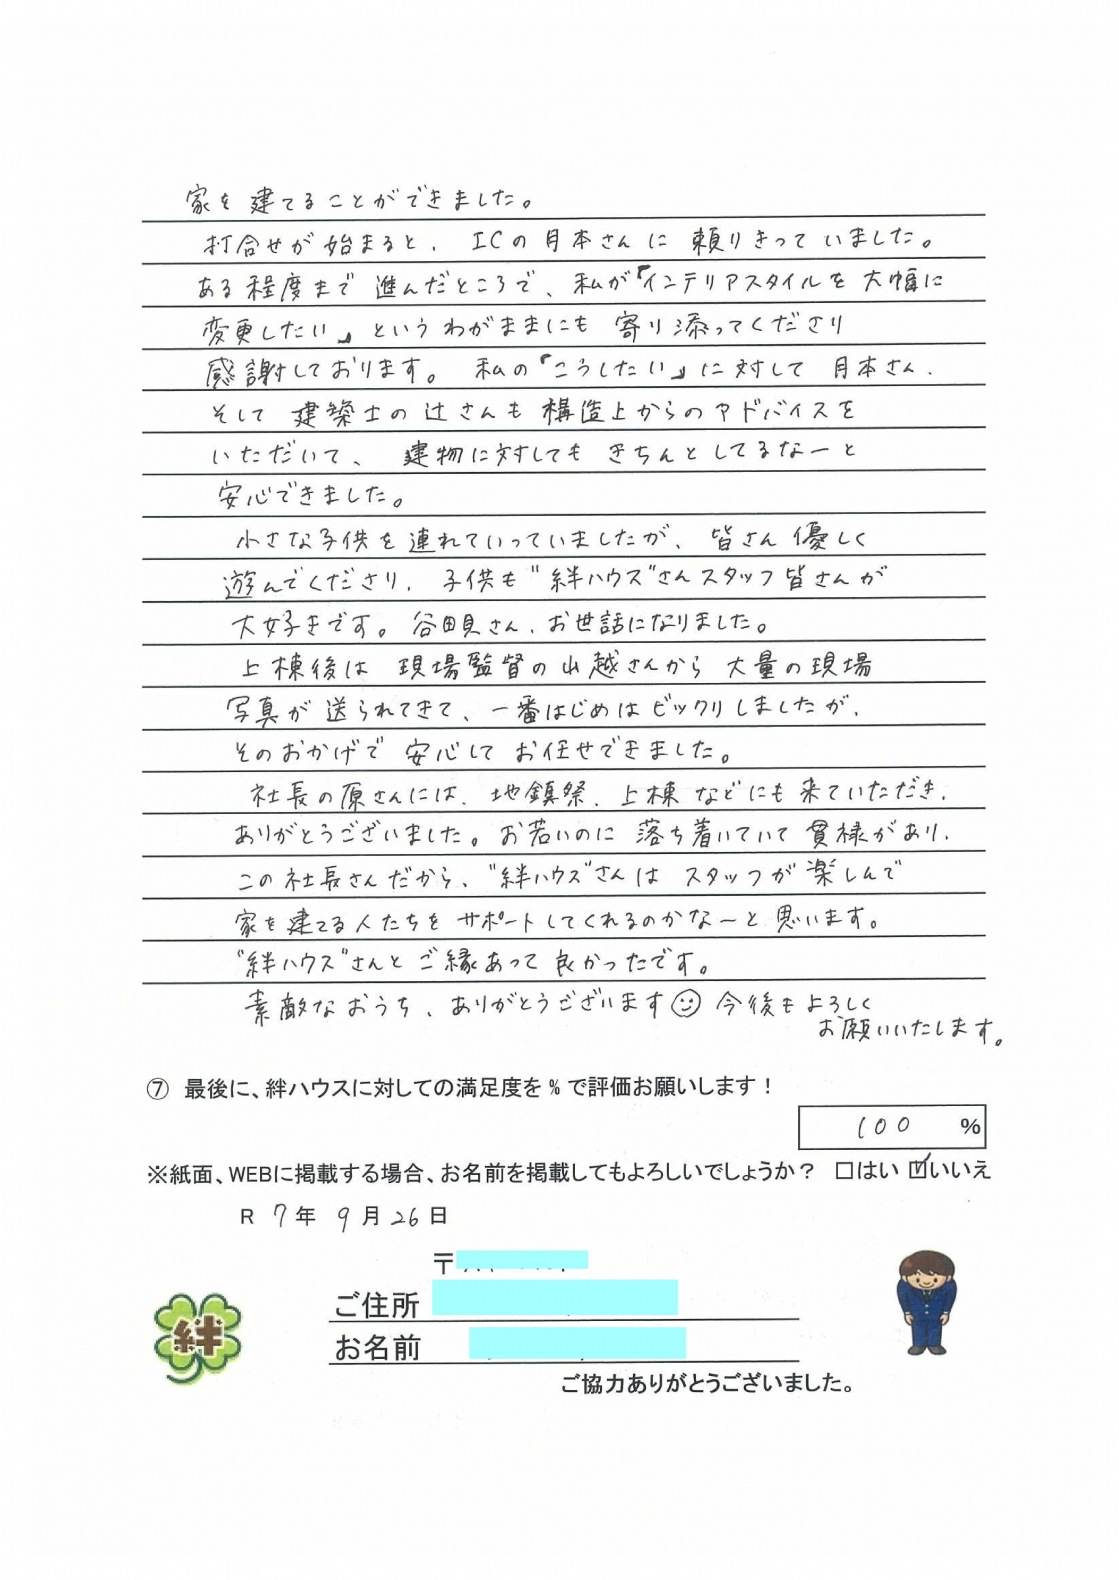 家を建てることができました。
打合せが始まると、ICの月本さんに頼りきっていました。
ある程度まで進んだところで、私が『インテリアスタイルを大幅に
変更したい』というわがままにも寄り添ってくださり
感謝しております。私の『こうしたい』に対して月本さん、
そして建築士の辻さんも構造上からのアドバイスを
いただいて、建物に対してもきちんとしてるなーと
安心できました。
小さな子供を連れていっていましたが、皆さん優しく
遊んでくださり、子供も"絆ハウス"さんスタッフ皆さんが
大好きです。谷田貝さん、お世話になりました。
上棟後は現場監督の山越さんから大量の現場
写真が送られてきて、一番はじめはビックリしましたが、
そのおかげで安心してお任せできました。
社長の原さんには、地鎮祭、上棟などにも来ていただき、
ありがとうございました。お若いのに落ち着いていて貫禄があり、
この社長さんだから、"絆ハウス"さんはスタッフが楽しんで
家を建てる人たちをサポートしてくれるのかなーと思います。
"絆ハウス"さんとご縁あって良かったです。
素敵なおうち、ありがとうございます☺今後もよろしく
お願いいたします。
⑦ 最後に、絆ハウスに対しての満足度を%で評価お願いします!
100 %
※紙面、WEBに掲載する場合、お名前を掲載してもよろしいでしょうか? □はい ☑いいえ
R 7年 9月26日
〒
ご住所
お名前
絆
ご協力ありがとうございました。